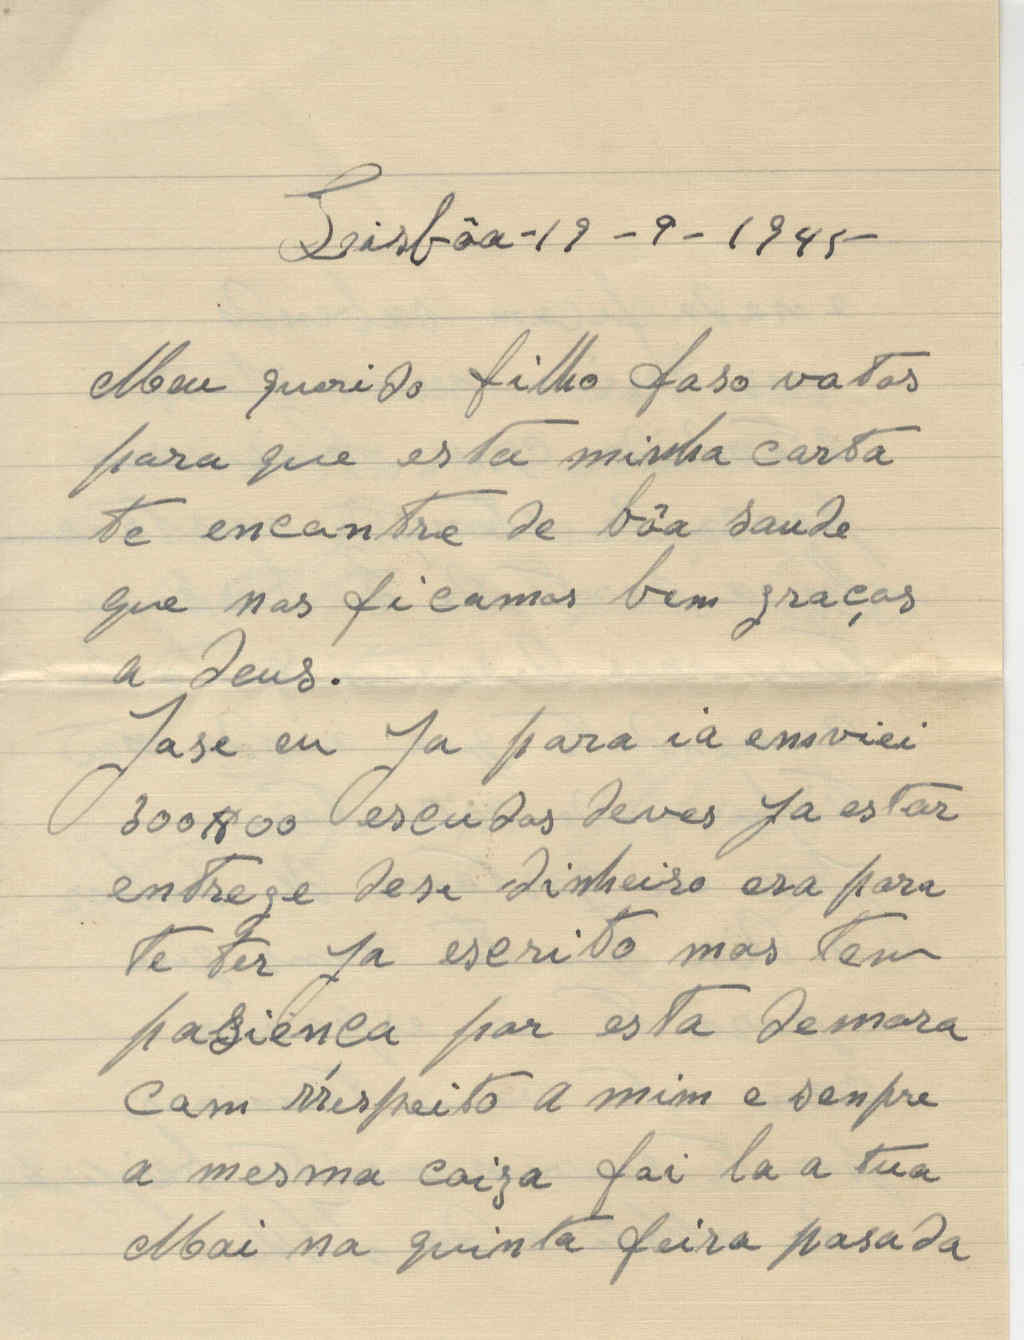 Leisbôa-19-9-1945-
Meu querido filho faso votos
para que esta minha carta
te encontre de bôa saude
que nos ficamos bem graços
a Deus.
Jase eu Ja para ia emviei
300$00 escudos deves Ja estar
entrege dese dinheiro era para
te ter Ja escrito mas tem
pasienca por esta demora
com rrespeito a mim e senpre
a mesma coiza foi la a tua
Mai na quinta feira pasada